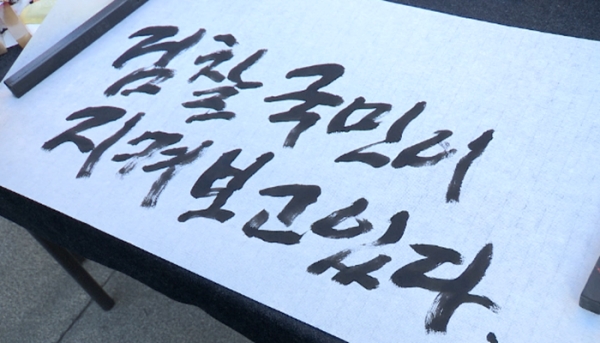 검찰 국민이
지켜보고있다.